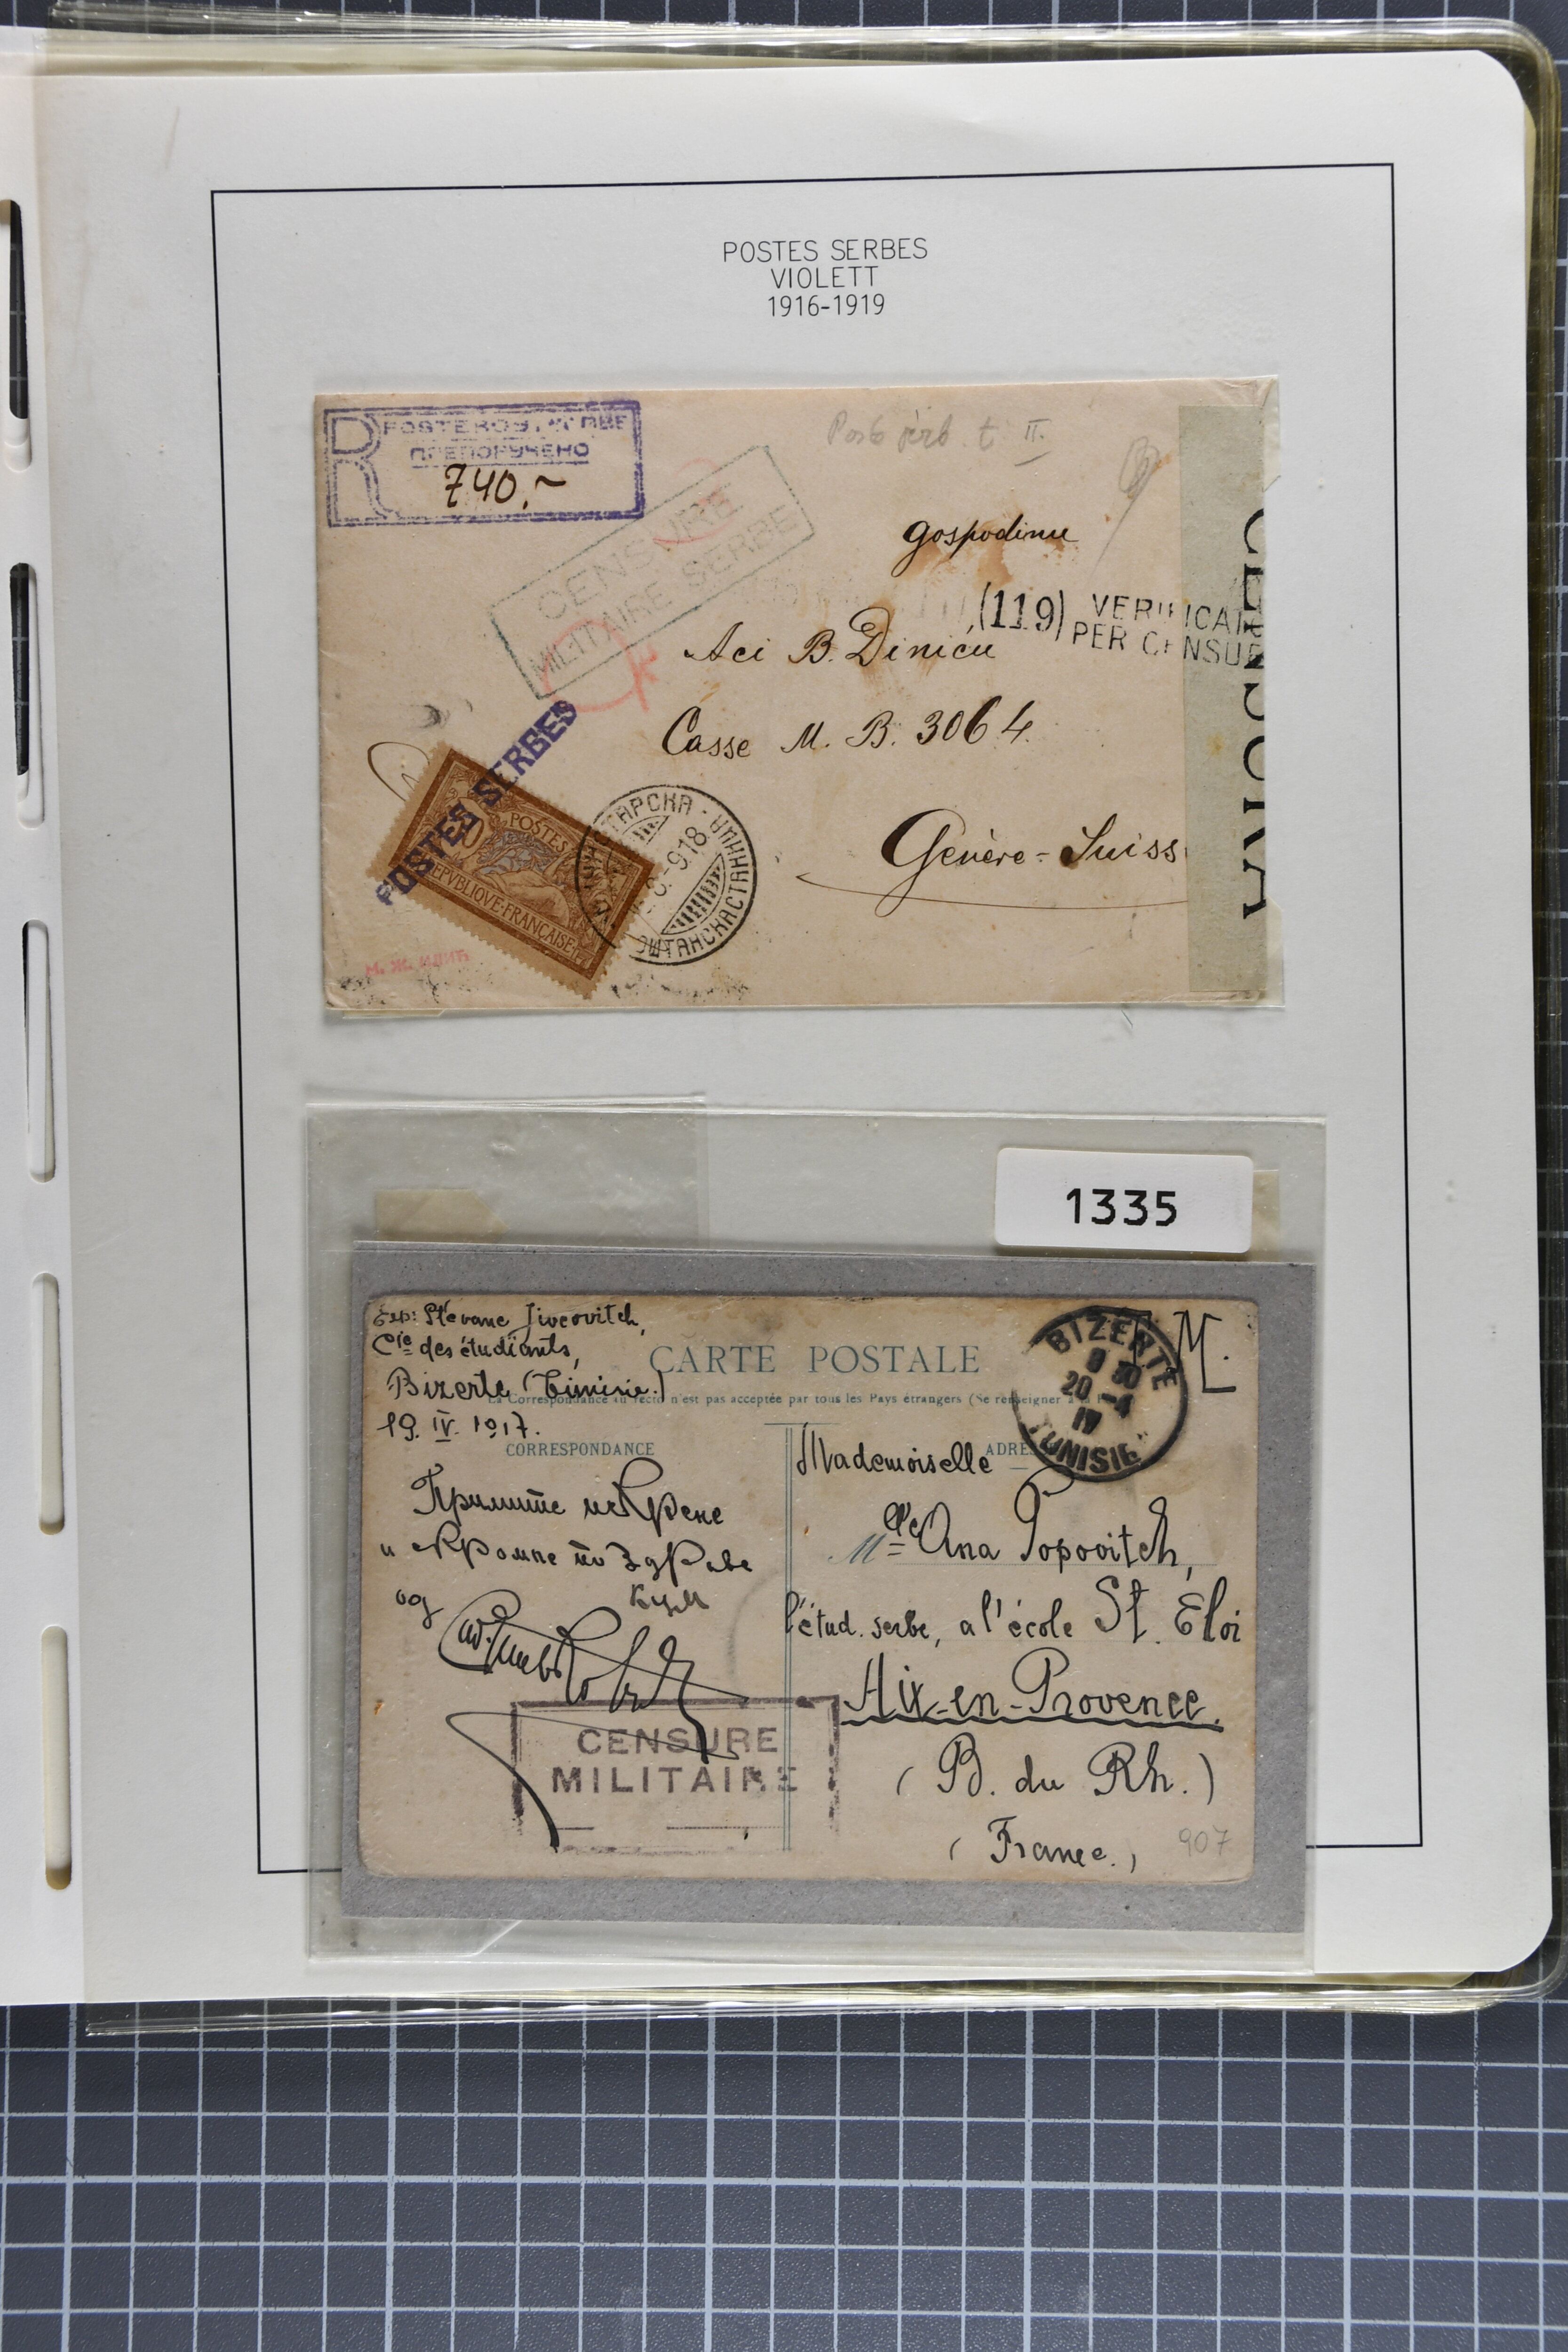 POSTES SERBES
VIOLETT
1916-1919
R
ПРЕПОРУЧЕНО
740.~
CENSURE
MILITAIRE SERBE
Gospodinu
(119) VERIFICAT
PER CENSUR
Aci B. Dinicu
Casse M. B. 3064
Genève-Suiss
POSTES SERBES
POSTES
REPVBLIQVE·FRANÇAISE
918
CENSURA
1335
Exp: Stevane Jivcovitch,
Cie des étudiants,
Bizerte (Tunisie.)
19. IV. 1917.
CARTE POSTALE
La Correspondance au recto n'est pas acceptée par tous les Pays étrangers (Se renseigner à la
F.M.
BIZERTE
9 30
20 -4
17
TUNISIE
CORRESPONDANCE
ADRES
Примите искрене
и скромне поздраве
од
Mademoiselle
Mlle Ana Popovitch,
l'étud. serbe, a l'école St. Eloi
Aix-en-Provence.
(B. du Rh.)
(France.)
907
CENSURE
MILITAIRE